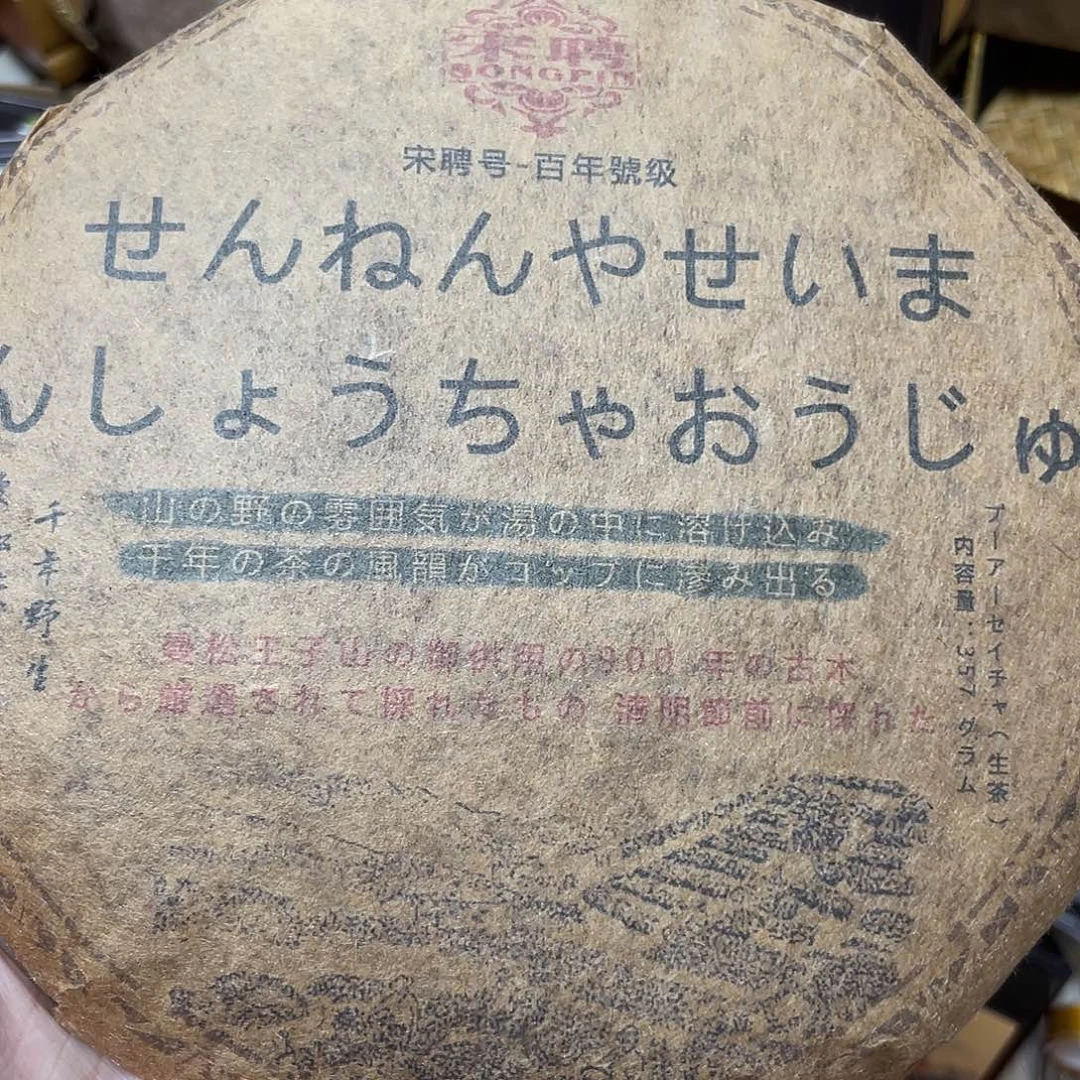 宋聘
SONGPIN
宋聘号-百年號级
せんねんやせいま
んしょうちゃおうじゅ
山の野の雰囲気が湯の中に溶け込み
千年の茶の風韻がコップに滲み出る
曼松王子山の御供園の800 年の古木
から厳選されて採れたもの 清明節前に採れた
プーアーセイチャ（生茶）
内容量：357 グラム
千年野生